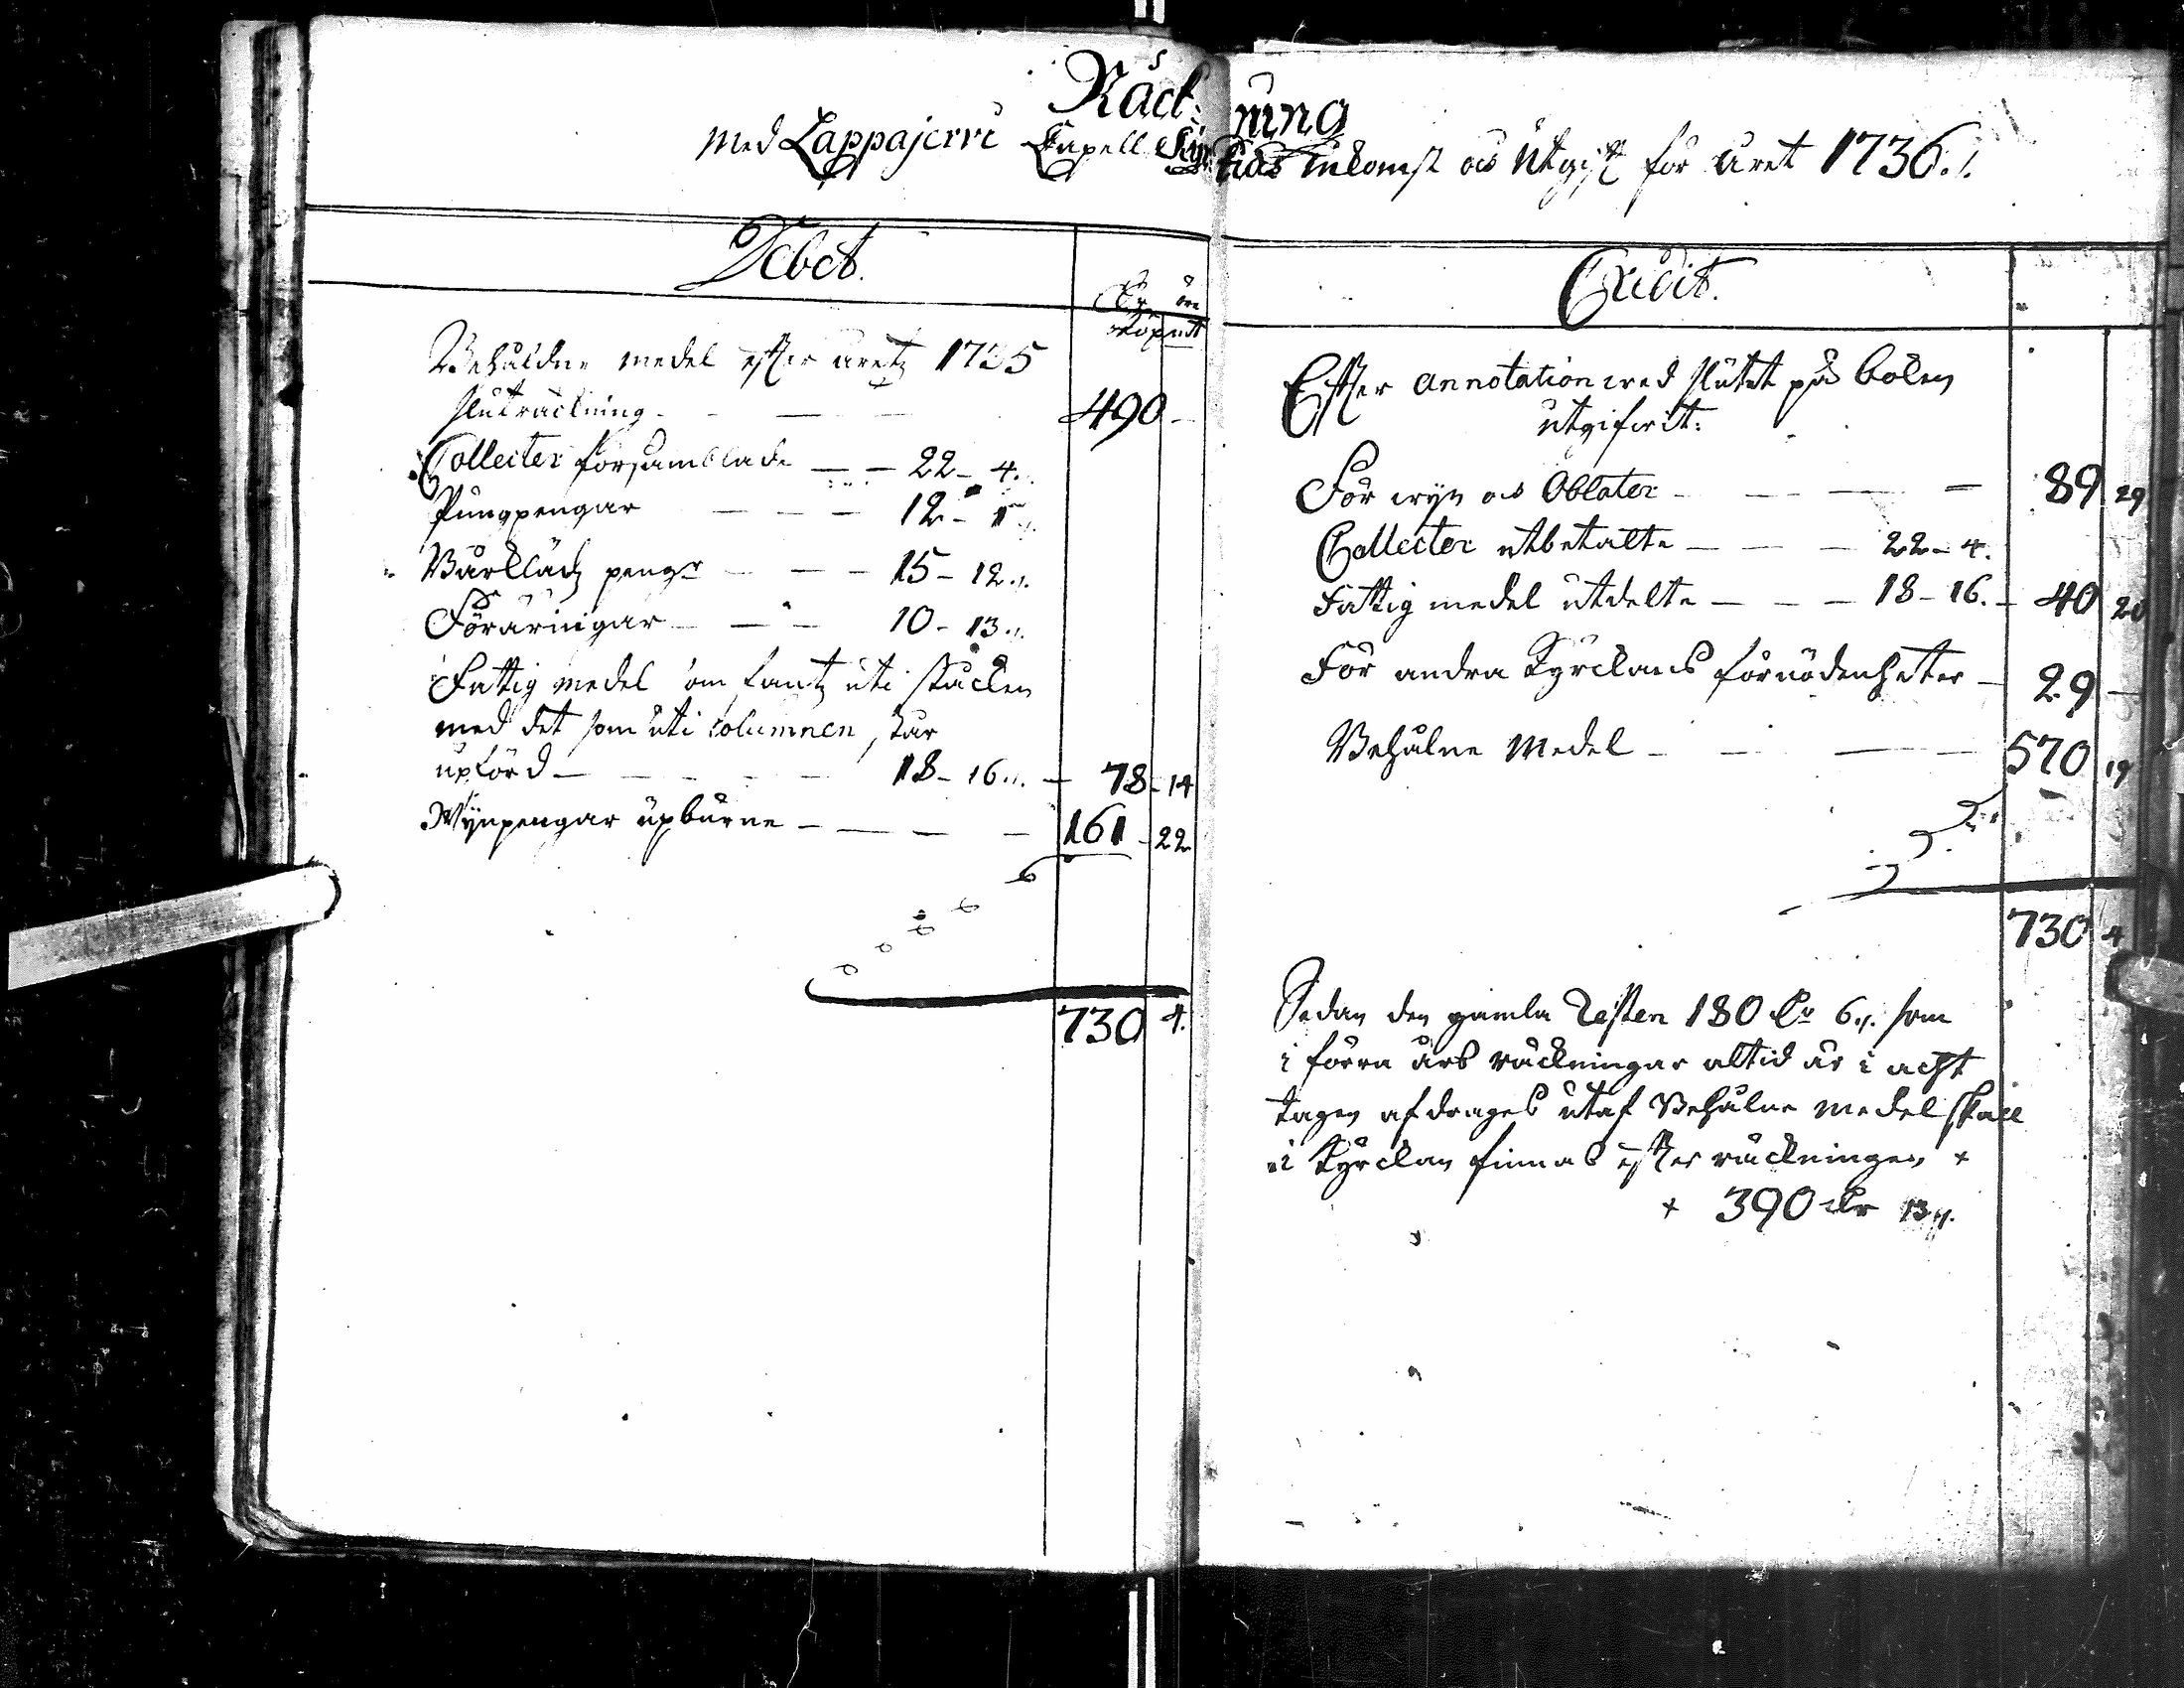 Räck: ning
Med Lappajervi Capell Kyrkias Inkomst och Utgift för året 1736./.
Debet.
Dr öre
Kopmt
Behåldne medel efter åretz 1735
sluträckning - - - 490 -
Collecter församblade - - 22 - 4.
Pungpengar - - - 12 - 1 ./.
Bårklädz peng:r - - - 15 - 12 ./.
Föräringar - - - 10 - 13 ./.
Fattig medel om fantz uti stäcken
med det som uti Columnen, står
upförd - - - - 18 - 16 ./. - 78 - 14
Wijnpengar upburne - - - - 161 - 22
730 4.
Credit.
Efter annotation wed slutet på boken
utgifwit:
För wijn och Oblater - - - - 89 29
Collecter utbetalte - - - 22 - 4.
Fattig medel utdelte - - - 18 - 16. - 40 20
För andra Kyrckans förnödenheter - 29 -
Behålne Medel - - - - 570 19
730 4
Sedan den gamla Resten 180 Dr 6 ./. som
i förra års räckningar altid är i acht
tagen afdrages utaf Behålne medel skall
i Kyrckan finnas efter räckningen +
+ 390 Dr 13 ./.